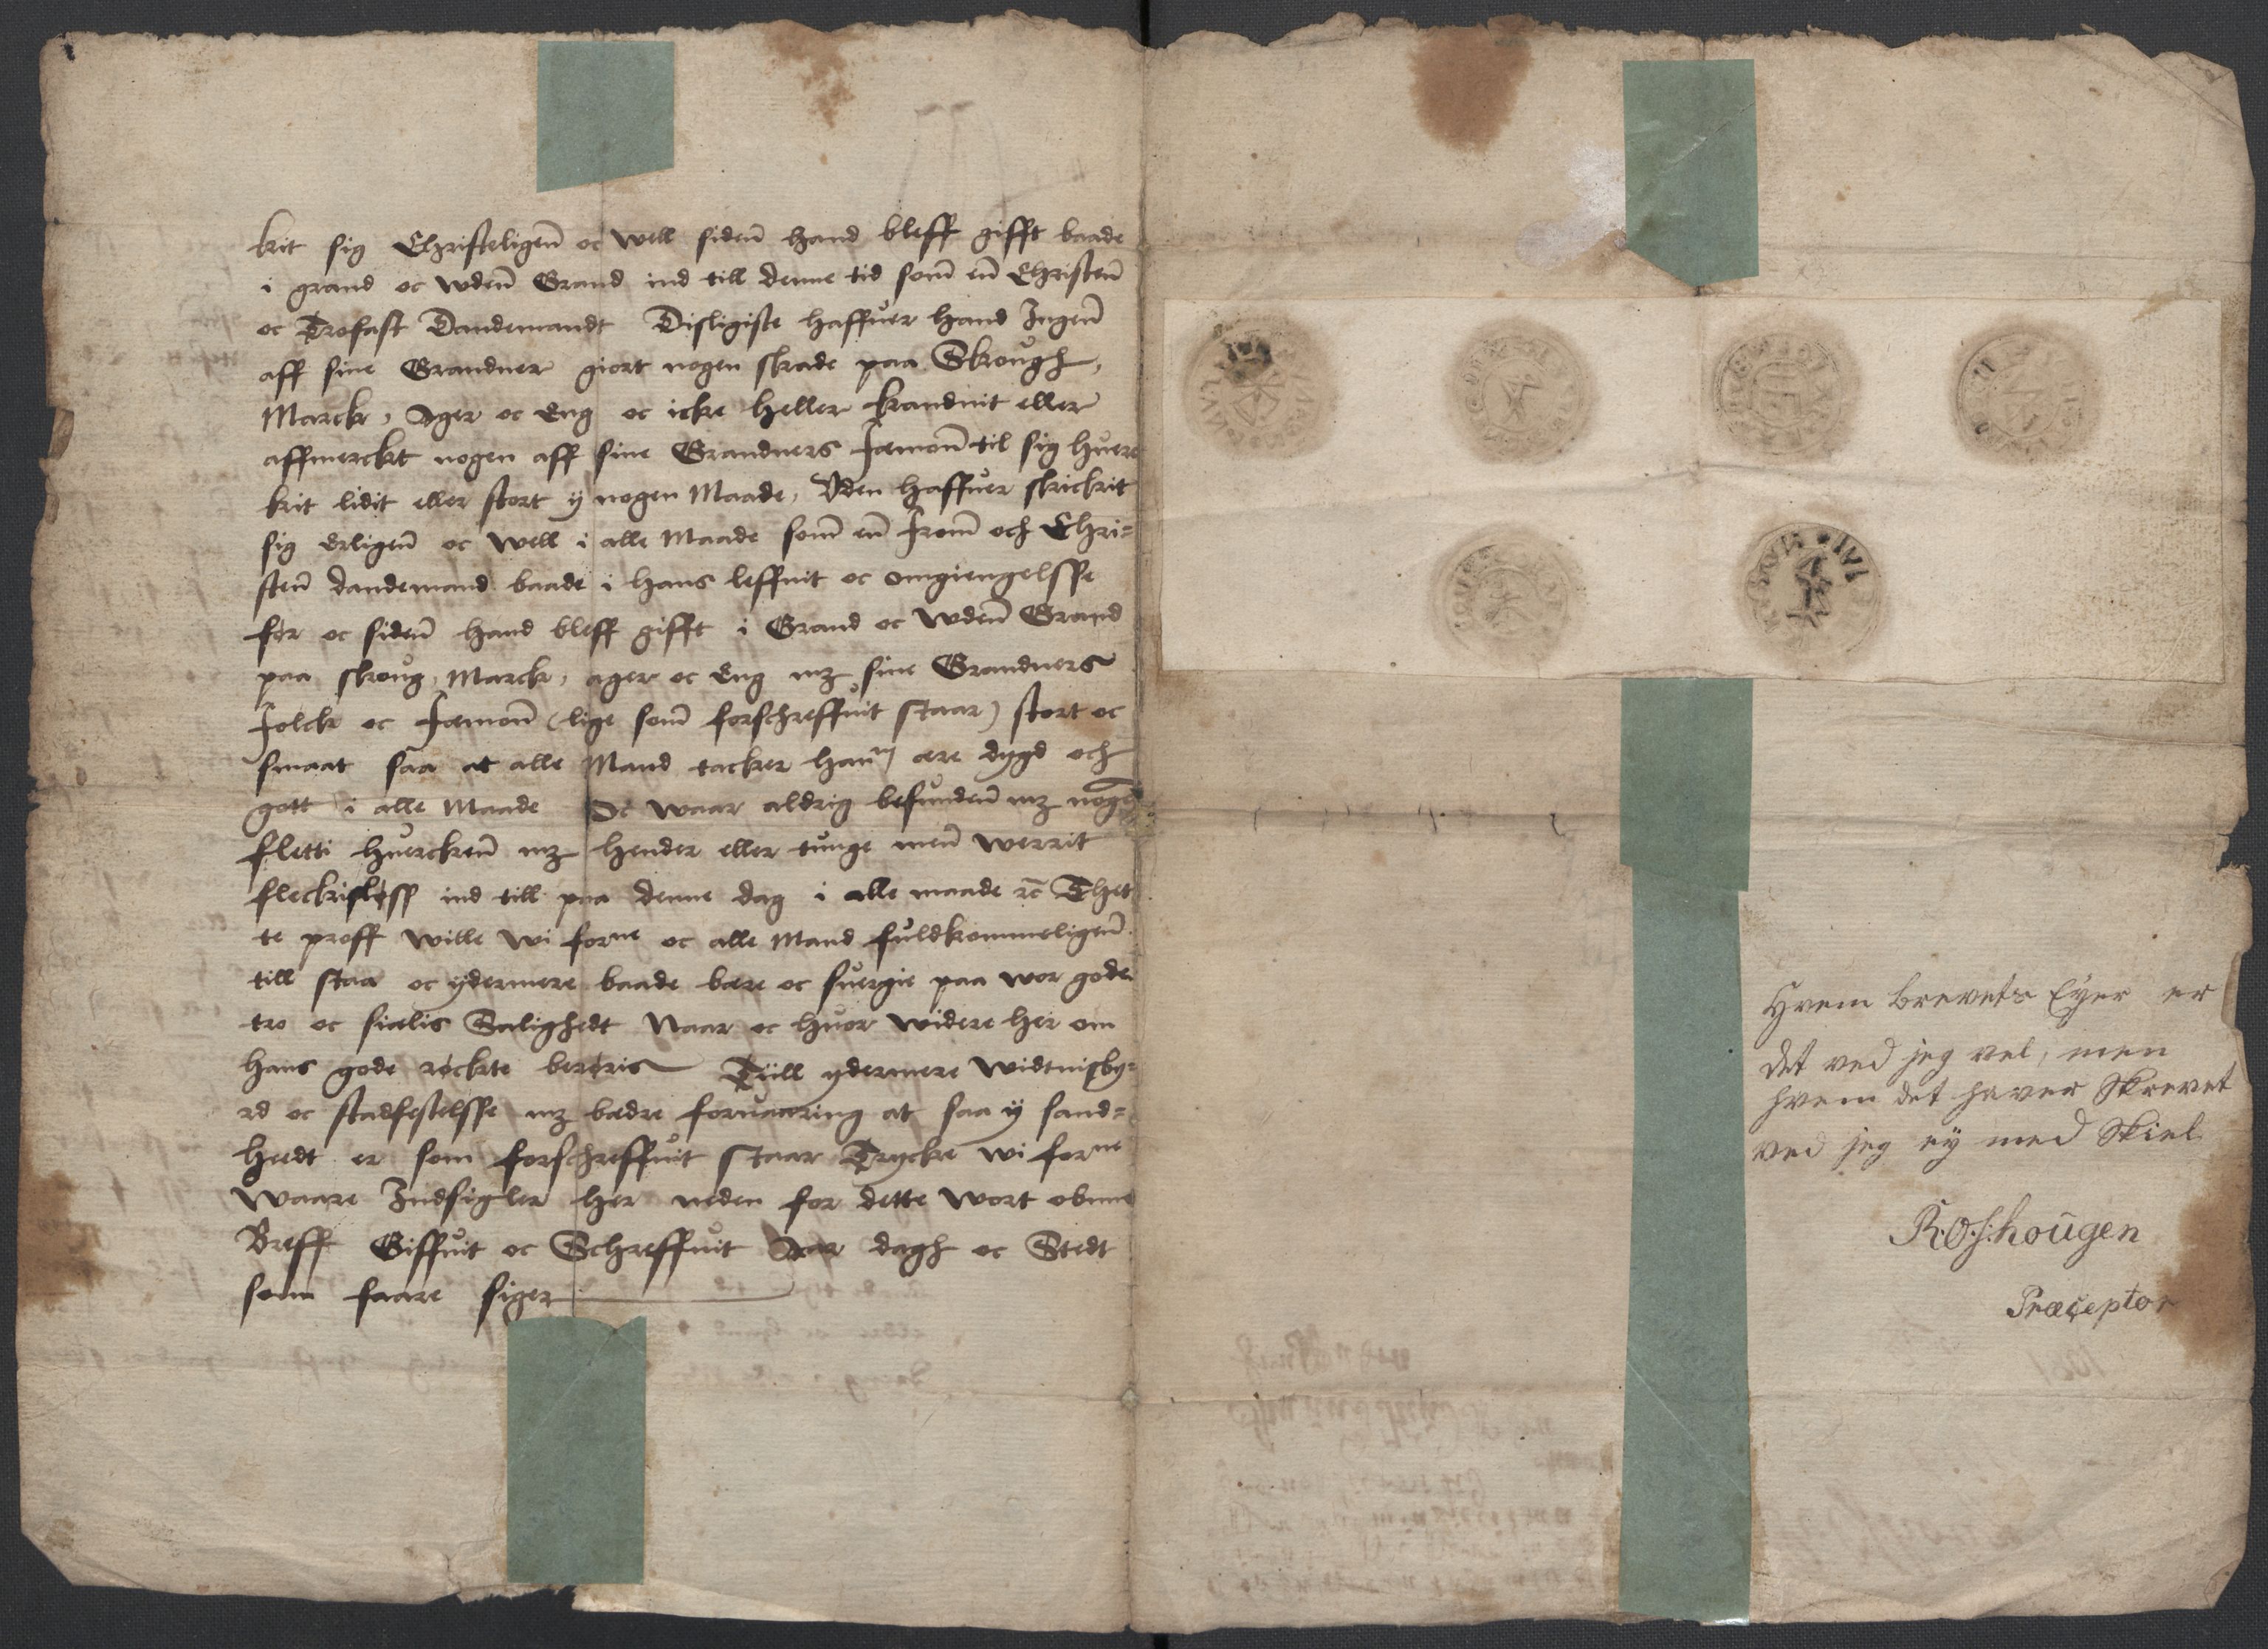 kit sig Christeligenn oc well sidenn hand bleff gifft baade
i grand oc wdenn Grand ind till denne tid som en Christen
oc Trofast Dandemandt Disligiste haffuer hand Ingenn
aff sine Grandner giort nogen skade paa Skough,
Marck, Ager oc Eng oc icke heller brandnit eller
affmerckt nogen aff sine Grandners fæmonn til sig huer
kit lidit eller stort y nogen Maade, Vden haffuer skickit
sig erligenn oc well i alle Maade som en from och Chri=
sten dandemand baade i hans leffnit oc omgiengelsse
for oc sidenn hand bleff gifft i Grand oc wdenn Grand
paa skoug, Marck, ager oc Eng mz sine Grandners
folck oc fæmonn (lige som forschreffuit staar) stort oc
smaat saa at alle Mand tacker hannm ære dygd och
gott i alle Maade Oc waar aldrig befundenn mz nogen
fletti huerckenn mz hender eller tunge menn werrit
fleckisløss ind till paa denne dag i alle maade rc Thet
te proff wille wi forne oc alle Mand fuldkommeligenn
till staa oc ydermere baade bære oc suergie paa wor gode
tro oc siælis Salighedt Naar oc huor widere her om
hans gode røckte berøris Till ydermere widtnisby=
rd oc stadfestelsse mz bædre foruaaring at saa y sand=
hedt er som forschreffuit staar Trycke wi forne
waare Indsigler her neden for dette wort obnne
Breff Giffuit oc Schreffuit Aar dagh oc Stedt
som faare siger
Hvem brevets Eyer er
det ved jeg vel, men
hvem det haver Skrevet
ved jeg ey med Skiel
R.O.S.hougen
Præceptor